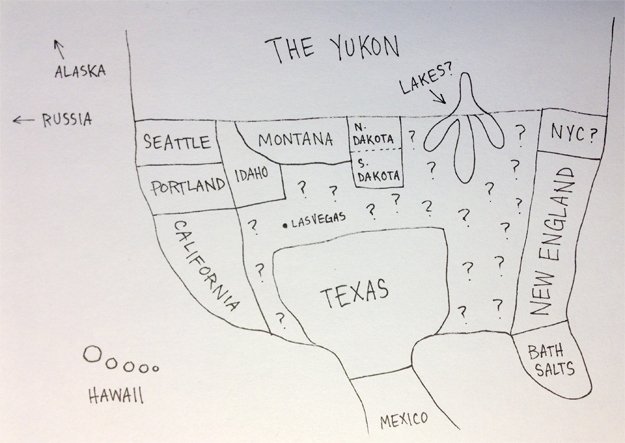 THE YUKON
ALASKA
LAKES?
RUSSIA
SEATTLE
MONTANA
N.
DAKOTA
?
?
NYC?
S.
DAKOTA
?
PORTLAND
IDAHO
?
?
?
?
?
?
?
?
?
LAS VEGAS
?
CALIFORNIA
NEW ENGLAND
?
TEXAS
?
?
?
?
?
BATH
SALTS
HAWAII
MEXICO